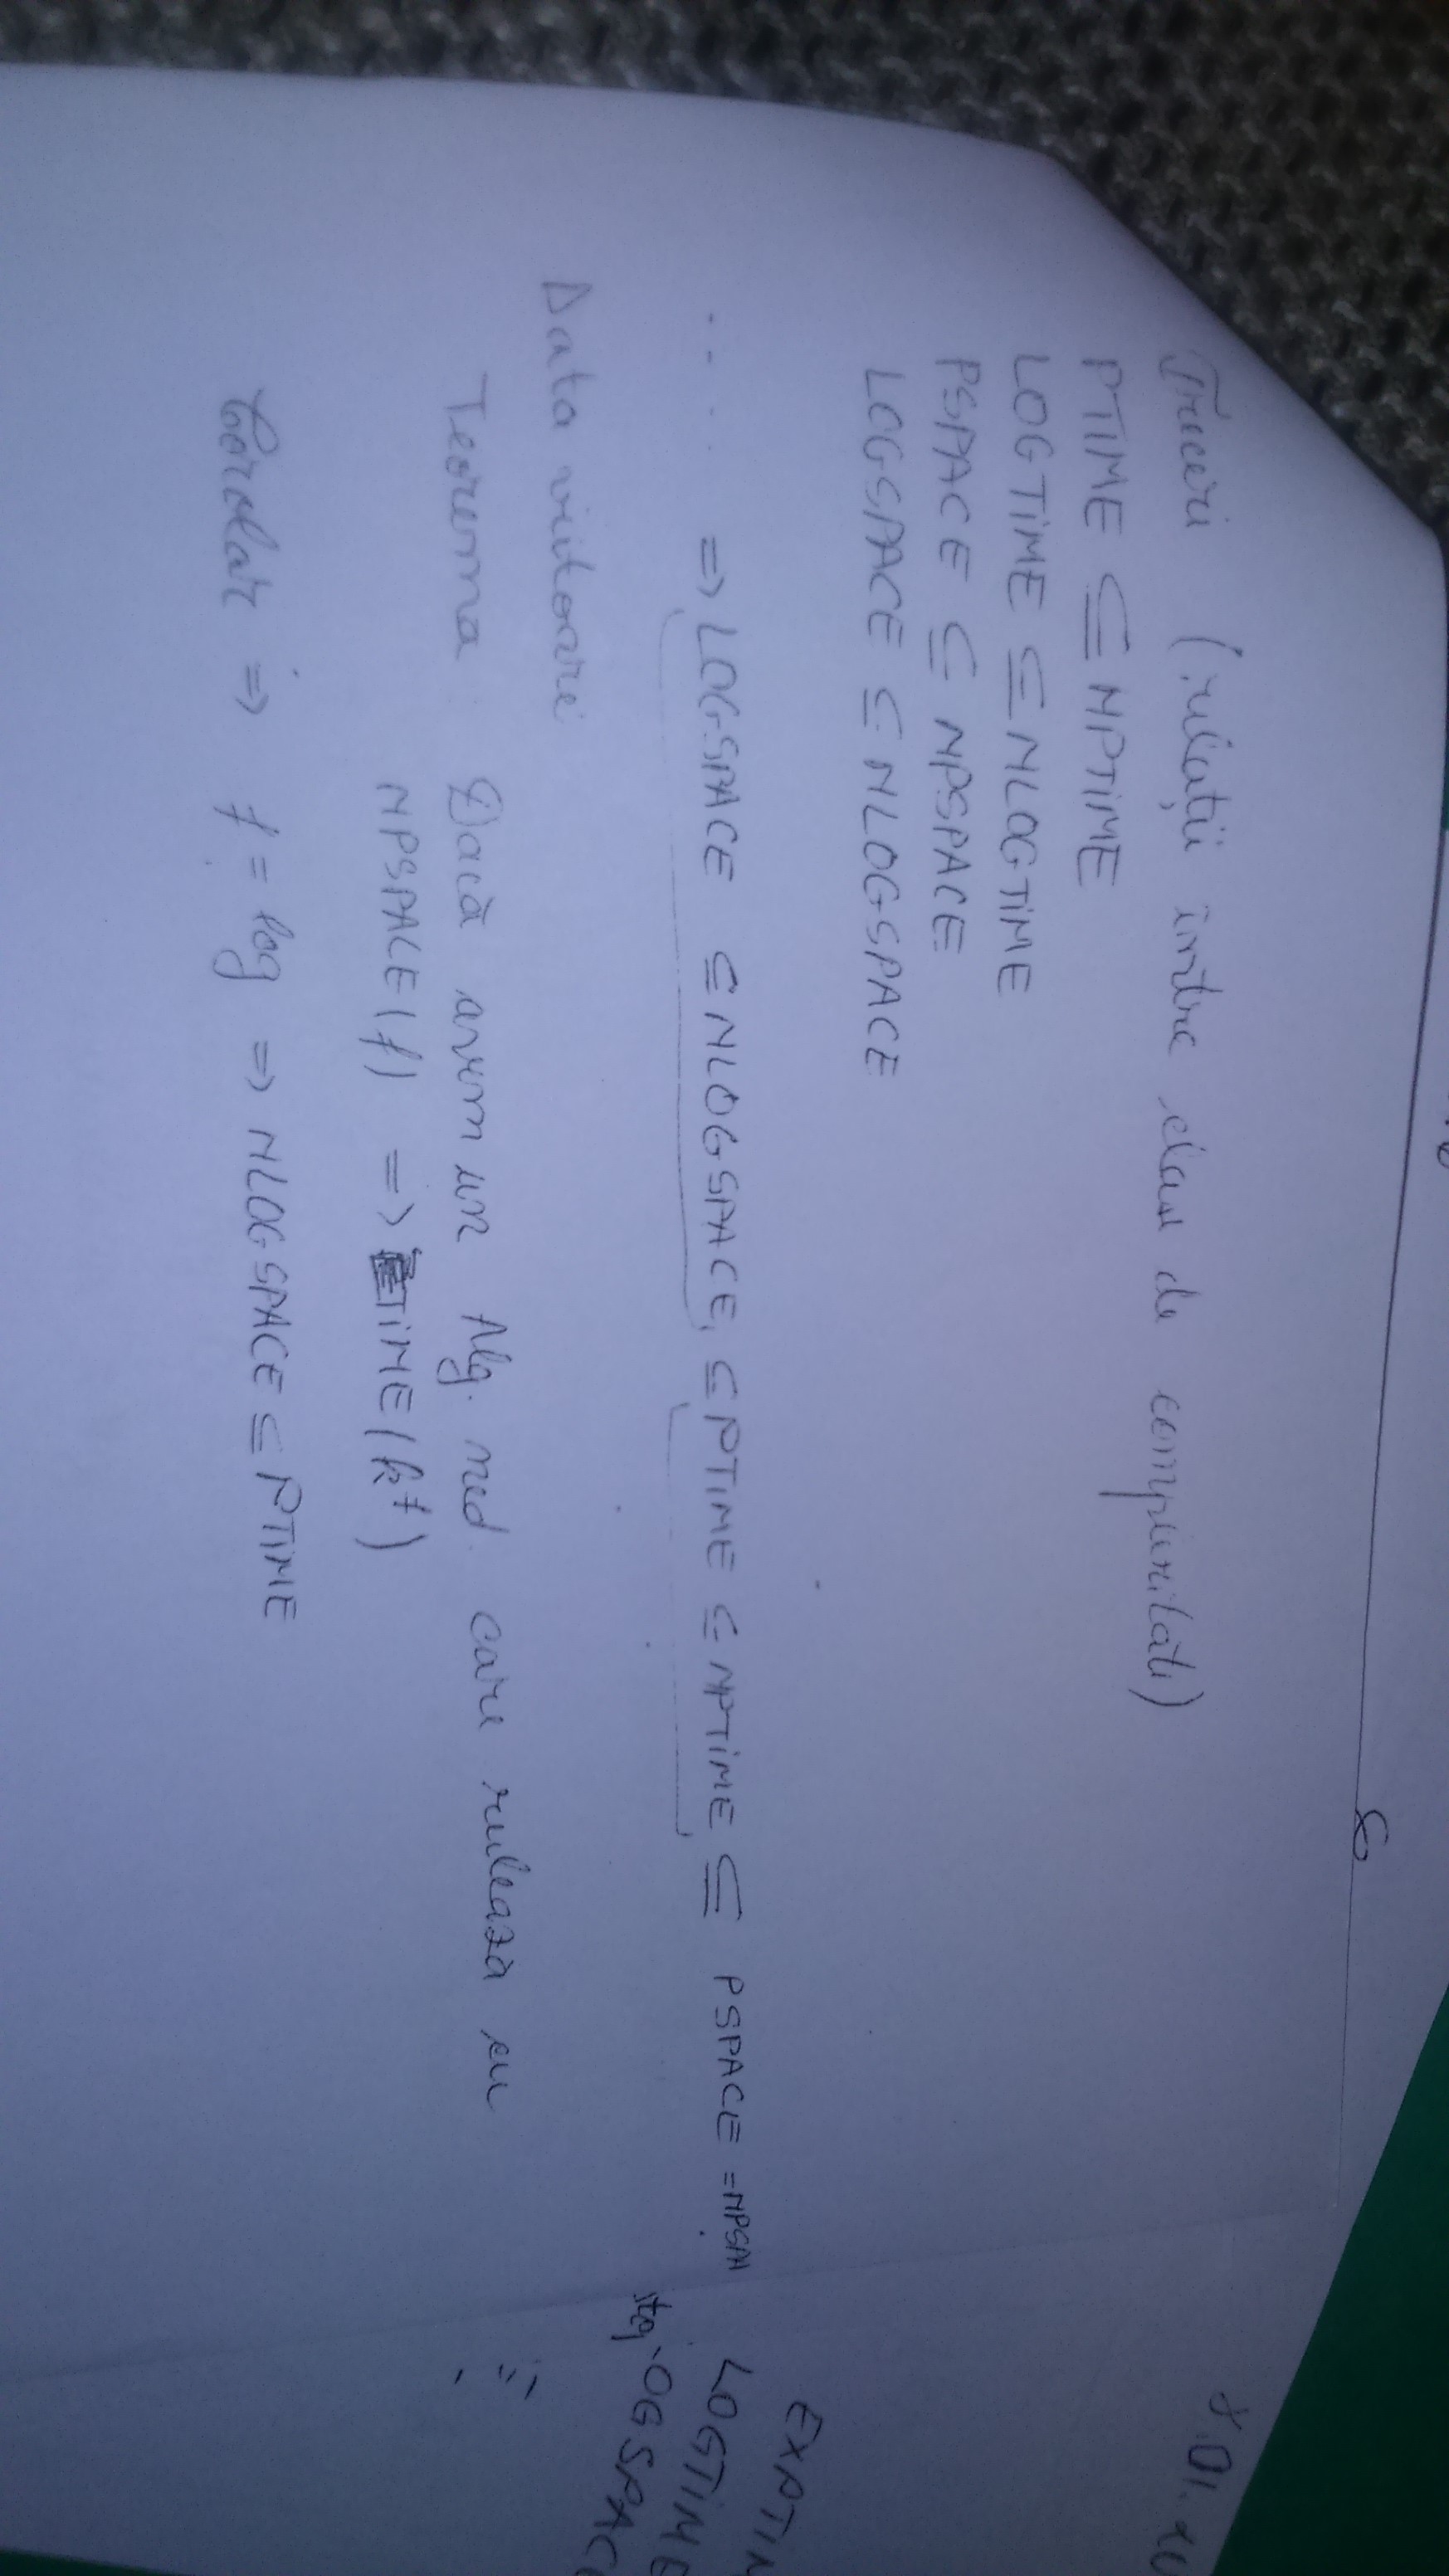 Treceri (relații între clase de complexități)
PTIME ⊆ NPTIME
LOGTIME ⊆ NLOGTIME
PSPACE ⊆ NPSPACE
LOGSPACE ⊆ NLOGSPACE
.... => LOGSPACE ⊆ NLOGSPACE, ⊆ PTIME ⊆ NPTIME ⊆ PSPACE = NPSPA
Data viitoare
Teorema Dacă avem un Alg. ned. care rulează în
NPSPACE(f) => TIME(k^f)
Corolar => f = log => NLOGSPACE ⊆ PTIME
EXPTIM
LOGTIME
OGSPAC